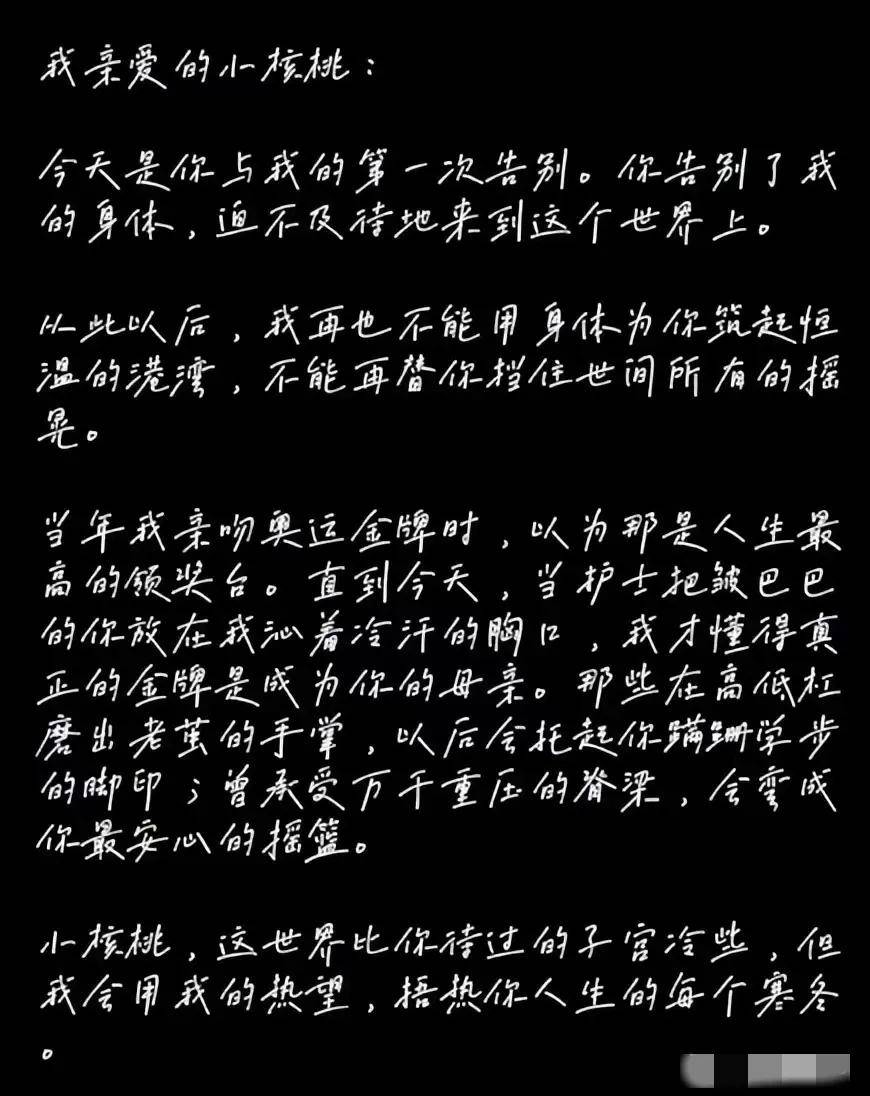 我亲爱的小核桃：
今天是你与我的第一次告别。你告别了我
的身体，迫不及待地来到这个世界上。
从此以后，我再也不能用身体为你筑起恒
温的港湾，不能再替你挡住世间所有的摇
晃。
当年我亲吻奥运金牌时，以为那是人生最
高的领奖台。直到今天，当护士把皱巴巴
的你放在我沁着冷汗的胸口，我才懂得真
正的金牌是成为你的母亲。那些在高低杠
磨出老茧的手掌，以后会托起你蹒跚学步
的脚印；曾承受万千重压的脊梁，会弯成
你最安心的摇篮。
小核桃，这世界比你待过的子宫冷些，但
我会用我的热望，捂热你人生的每个寒冬
。